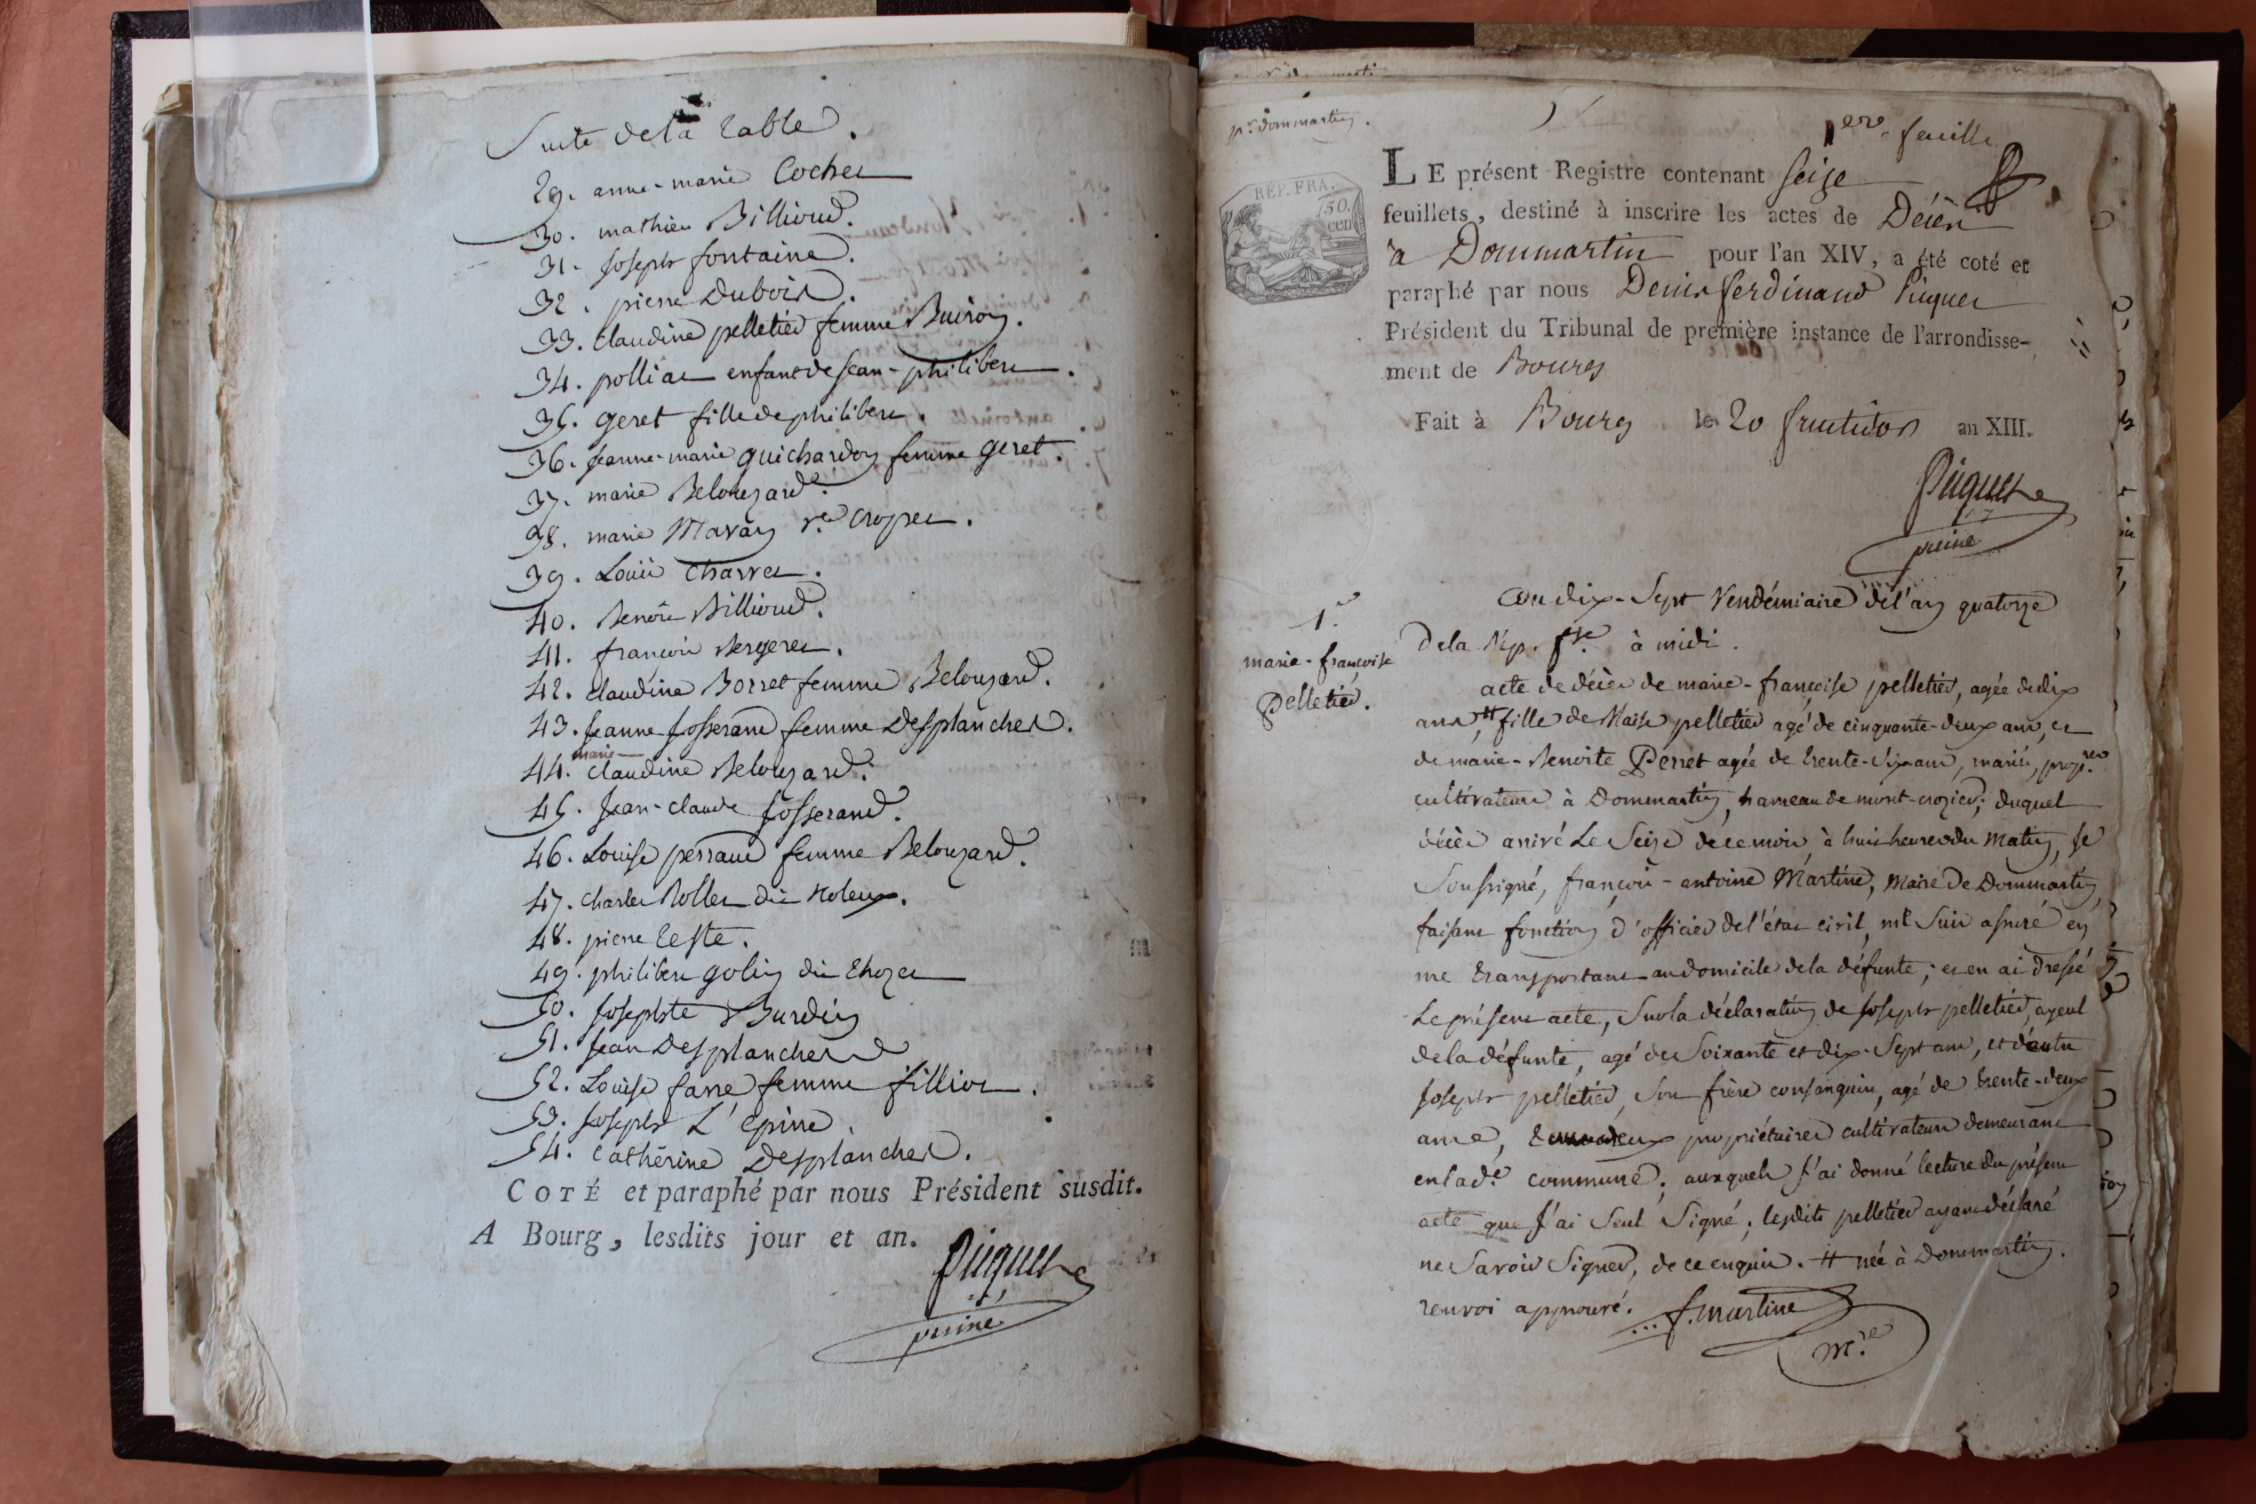 Suite de la table.
29. anne-marie Cochet
30. mathieu Billioud.
31. Joseph fontaine.
32. pierre Dubois.
33. Claudine pelletier femme Buiron.
34. polliat enfant de Jean-philibert.
35. geret fille de philibert.
36. Jeanne-marie guichardon femme geret.
37. marie Belouzard.
38. marie Mavan v.e Croper.
39. Louis Charvet.
40. Benoit Billioud.
41. françois Bergeret.
42. Claudine Borret femme Belouzard.
43. Jeanne Josserand femme Desplanches.
marie
44. Claudine Belouzard.
45. Jean-claude Josserand.
46. Louise perraud femme Belouzard.
47. Charles Rollet dit Noleux.
48. pierre teste.
49. philibert golin dit thozet
50. Josephte Burdin
51. Jean Desplanches
52. Louise farre femme fillion.
53. Joseph L'Epine
54. Cathérine Desplanches.
COTÉ et paraphé par nous Président susdit.
A Bourg, lesdits jour et an.
Picquet
p.r dommartin.
1ere feuille
RÉP. FRA.
50.
cen
LE présent Registre contenant seize
feuillets, destiné à inscrire les actes de Décès
à Dommartin pour l'an XIV, a été coté et
paraphé par nous Denis ferdinand Picquet
Président du Tribunal de première instance de l'arrondisse-
ment de Bourg
Fait à Bourg le 20 fructidor an XIII.
Picquet
1.
marie-françoise
Pelletier.
Du dix-Sept Vendémiaire de l'an quatorze
de la Rép. fse. à midi.
acte de décès de marie-françoise pelletier, agée de dix
ans, # fille de Blaise pelletier agé de cinquante-deux ans, et
de marie-Benoite Perret agée de trente-six ans, mariés, prop.res
cultivateurs à Dommartin, hameau de mont-crozier; duquel
décès arrivé Le Seize de ce mois, à huit heures du Matin, Je
Soussigné, françois-antoine Martine, Maire de Dommartin,
faisant fonction d'officier de l'état civil, me Suis assuré en
me transportant au domicile de la défunte; et en ai dressé
Le présent acte, Sur la déclaration de Joseph pelletier, ayeul
de la défunte, agé de Soixante et dix-Sept ans, et d'autre
Joseph pelletier, Son frère consanguin, agé de trente-deux
ans, propriétaires cultivateurs demeurant
en lad.e commune; auxquels J'ai donné lecture du présent
acte que J'ai Seul Signé; lesdits pelletier ayant déclaré
ne Savoir Signer, de ce enquis. # née à Dommartin.
renvoi approuvé. f. martine
m.re